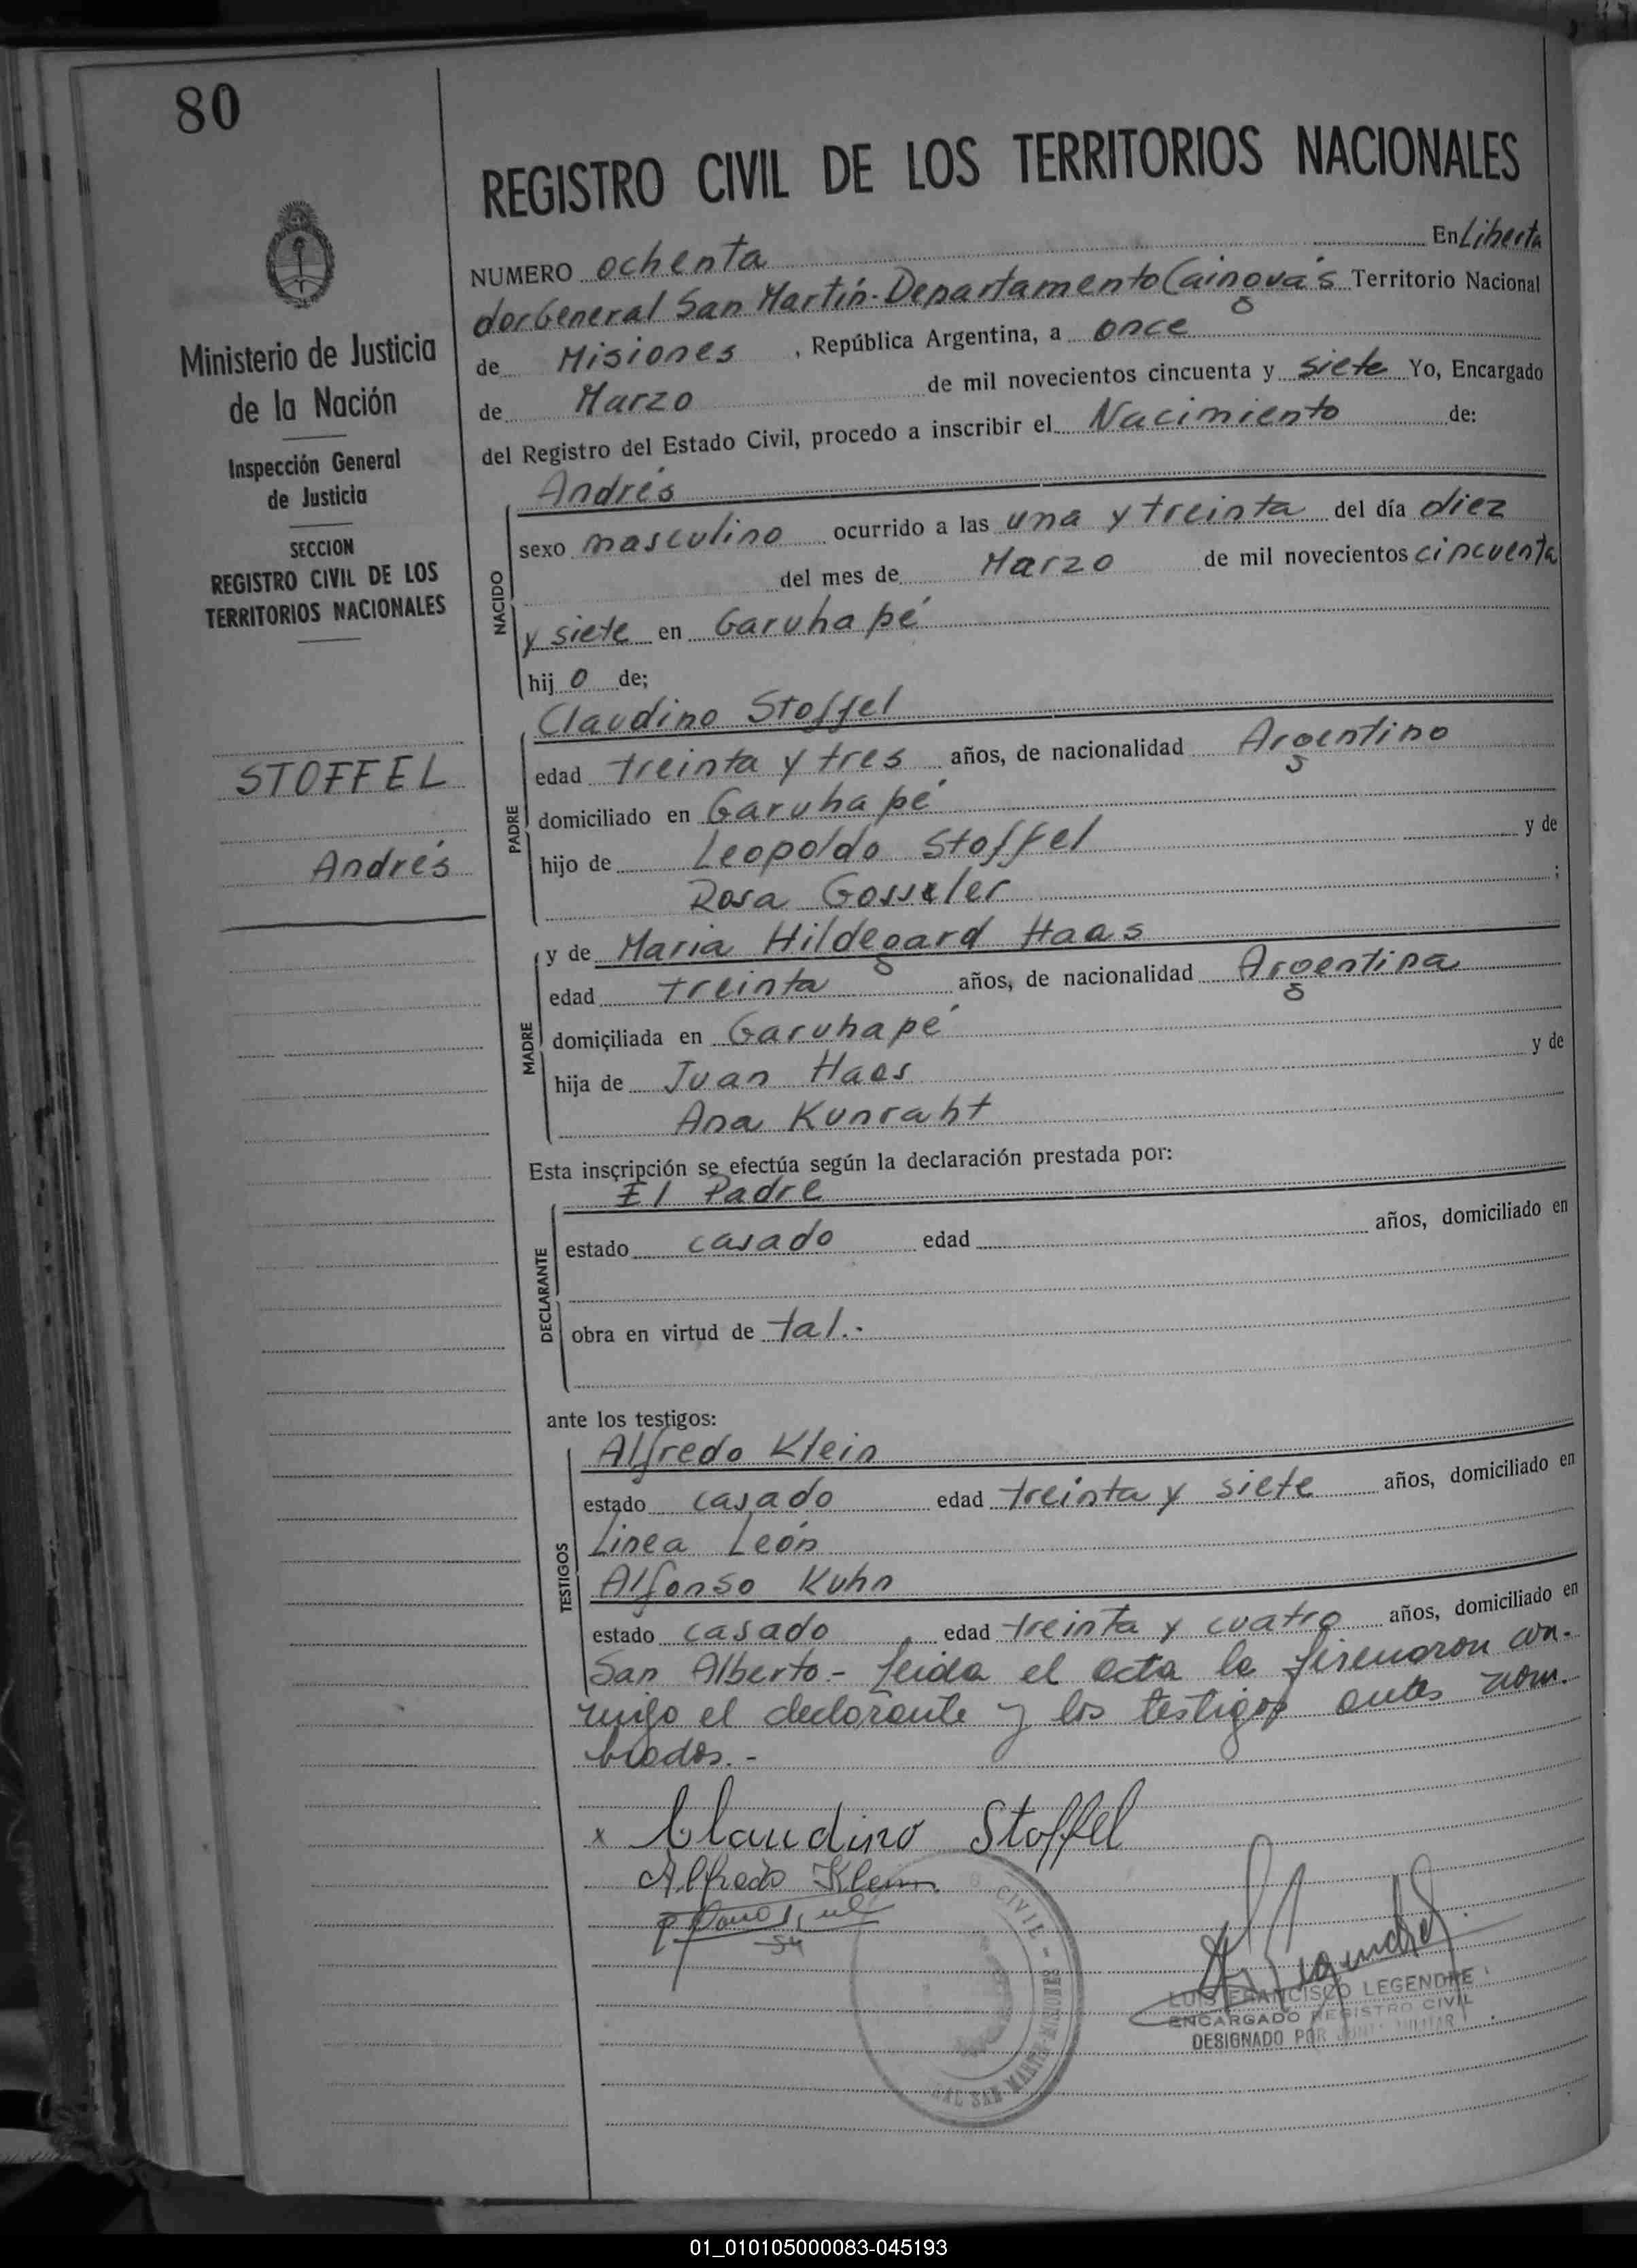 80
REGISTRO CIVIL DE LOS TERRITORIOS NACIONALES
Ministerio de Justicia
de la Nación
Inspección General
de Justicia
SECCION
REGISTRO CIVIL DE LOS
TERRITORIOS NACIONALES
STOFFEL
Andrés
NUMERO ochenta En Liberta
dor General San Martín-Departamento Cainguás Territorio Nacional
de Misiones, República Argentina, a once
de Marzo de mil novecientos cincuenta y siete Yo, Encargado
del Registro del Estado Civil, procedo a inscribir el Nacimiento de:
NACIDO
Andrés
sexo masculino ocurrido a las una y treinta del día diez
del mes de Marzo de mil novecientos cincuenta
y siete en Garuhapé
hijo de;
PADRE
Claudino Stoffel
edad treinta y tres años, de nacionalidad Argentino
domiciliado en Garuhapé
hijo de Leopoldo Stoffel y de
Rosa Gosseler;
MADRE
y de Maria Hildegard Haas
edad treinta años, de nacionalidad Argentina
domiciliada en Garuhapé
hija de Juan Haas y de
Ana Kunraht
Esta inscripción se efectúa según la declaración prestada por:
DECLARANTE
El Padre
estado casado edad años, domiciliado en
obra en virtud de tal.-
ante los testigos:
TESTIGOS
Alfredo Klein
estado casado edad treinta y siete años, domiciliado en
Linea León
Alfonso Kuhn
estado casado edad treinta y cuatro años, domiciliado en
San Alberto.- Leida el acta la firmaron con-
migo el declarante y los testigos antes nom-
brados.-
x Claudino Stoffel
Alfredo Klein
CIVIL - MISIONES
GRAL SAN MARTIN
LUIS FRANCISCO LEGENDRE
ENCARGADO REGISTRO CIVIL
DESIGNADO POR JUNTA MILITAR
01_010105000083-045193